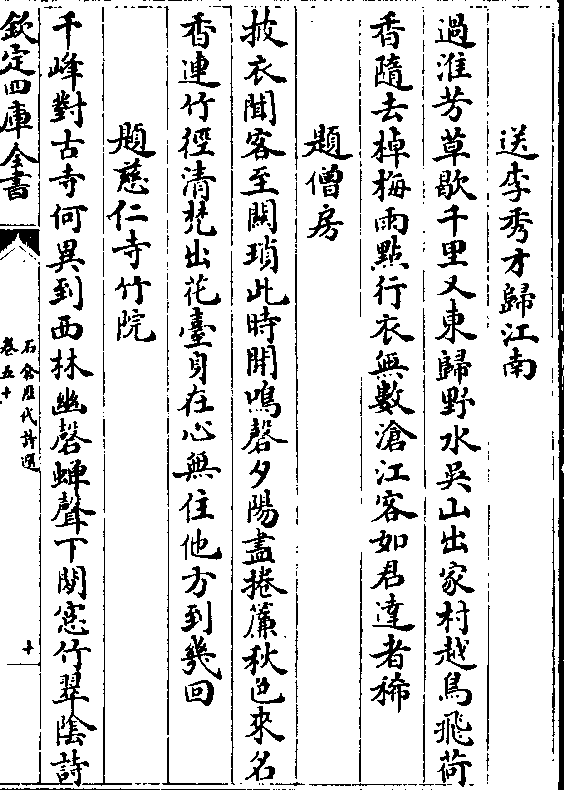 送李秀才歸江南
過淮芳草歇千里又東歸野水吳山出家村越鳥飛荷
香隨去棹梅雨點行衣無數滄江客如君達者稀
題僧房
披衣聞客至關瑣此時開鳴磬夕陽盡捲簾秋色來名
香連竹徑清梵出花臺身在心無住他方到幾回
題慈仁寺竹院
千峰對古寺何異到西林幽磬蟬聲下閒窓竹翠陰詩
欽定四庫全書
石倉歷代詩選
卷五十
十